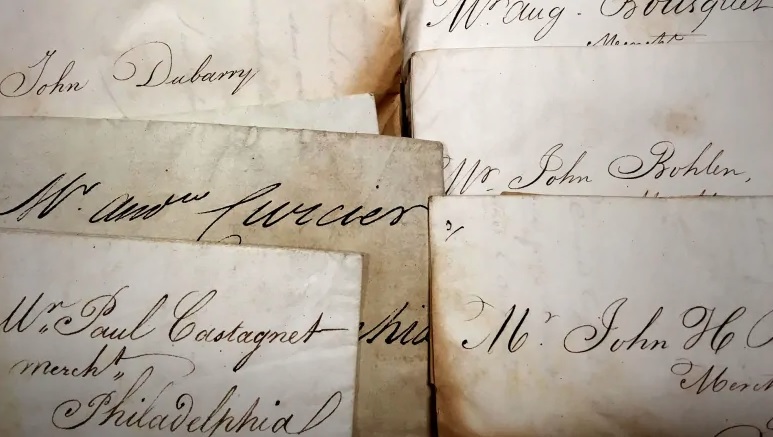 John Dubarry
Mr. Aug. Bousquet
Mercht
Mr. John Bohlen,
Mr. Andw Curcier
phia
Mr. Paul Castagnet
mercht
Philadelphia
Mr. John H
Merch